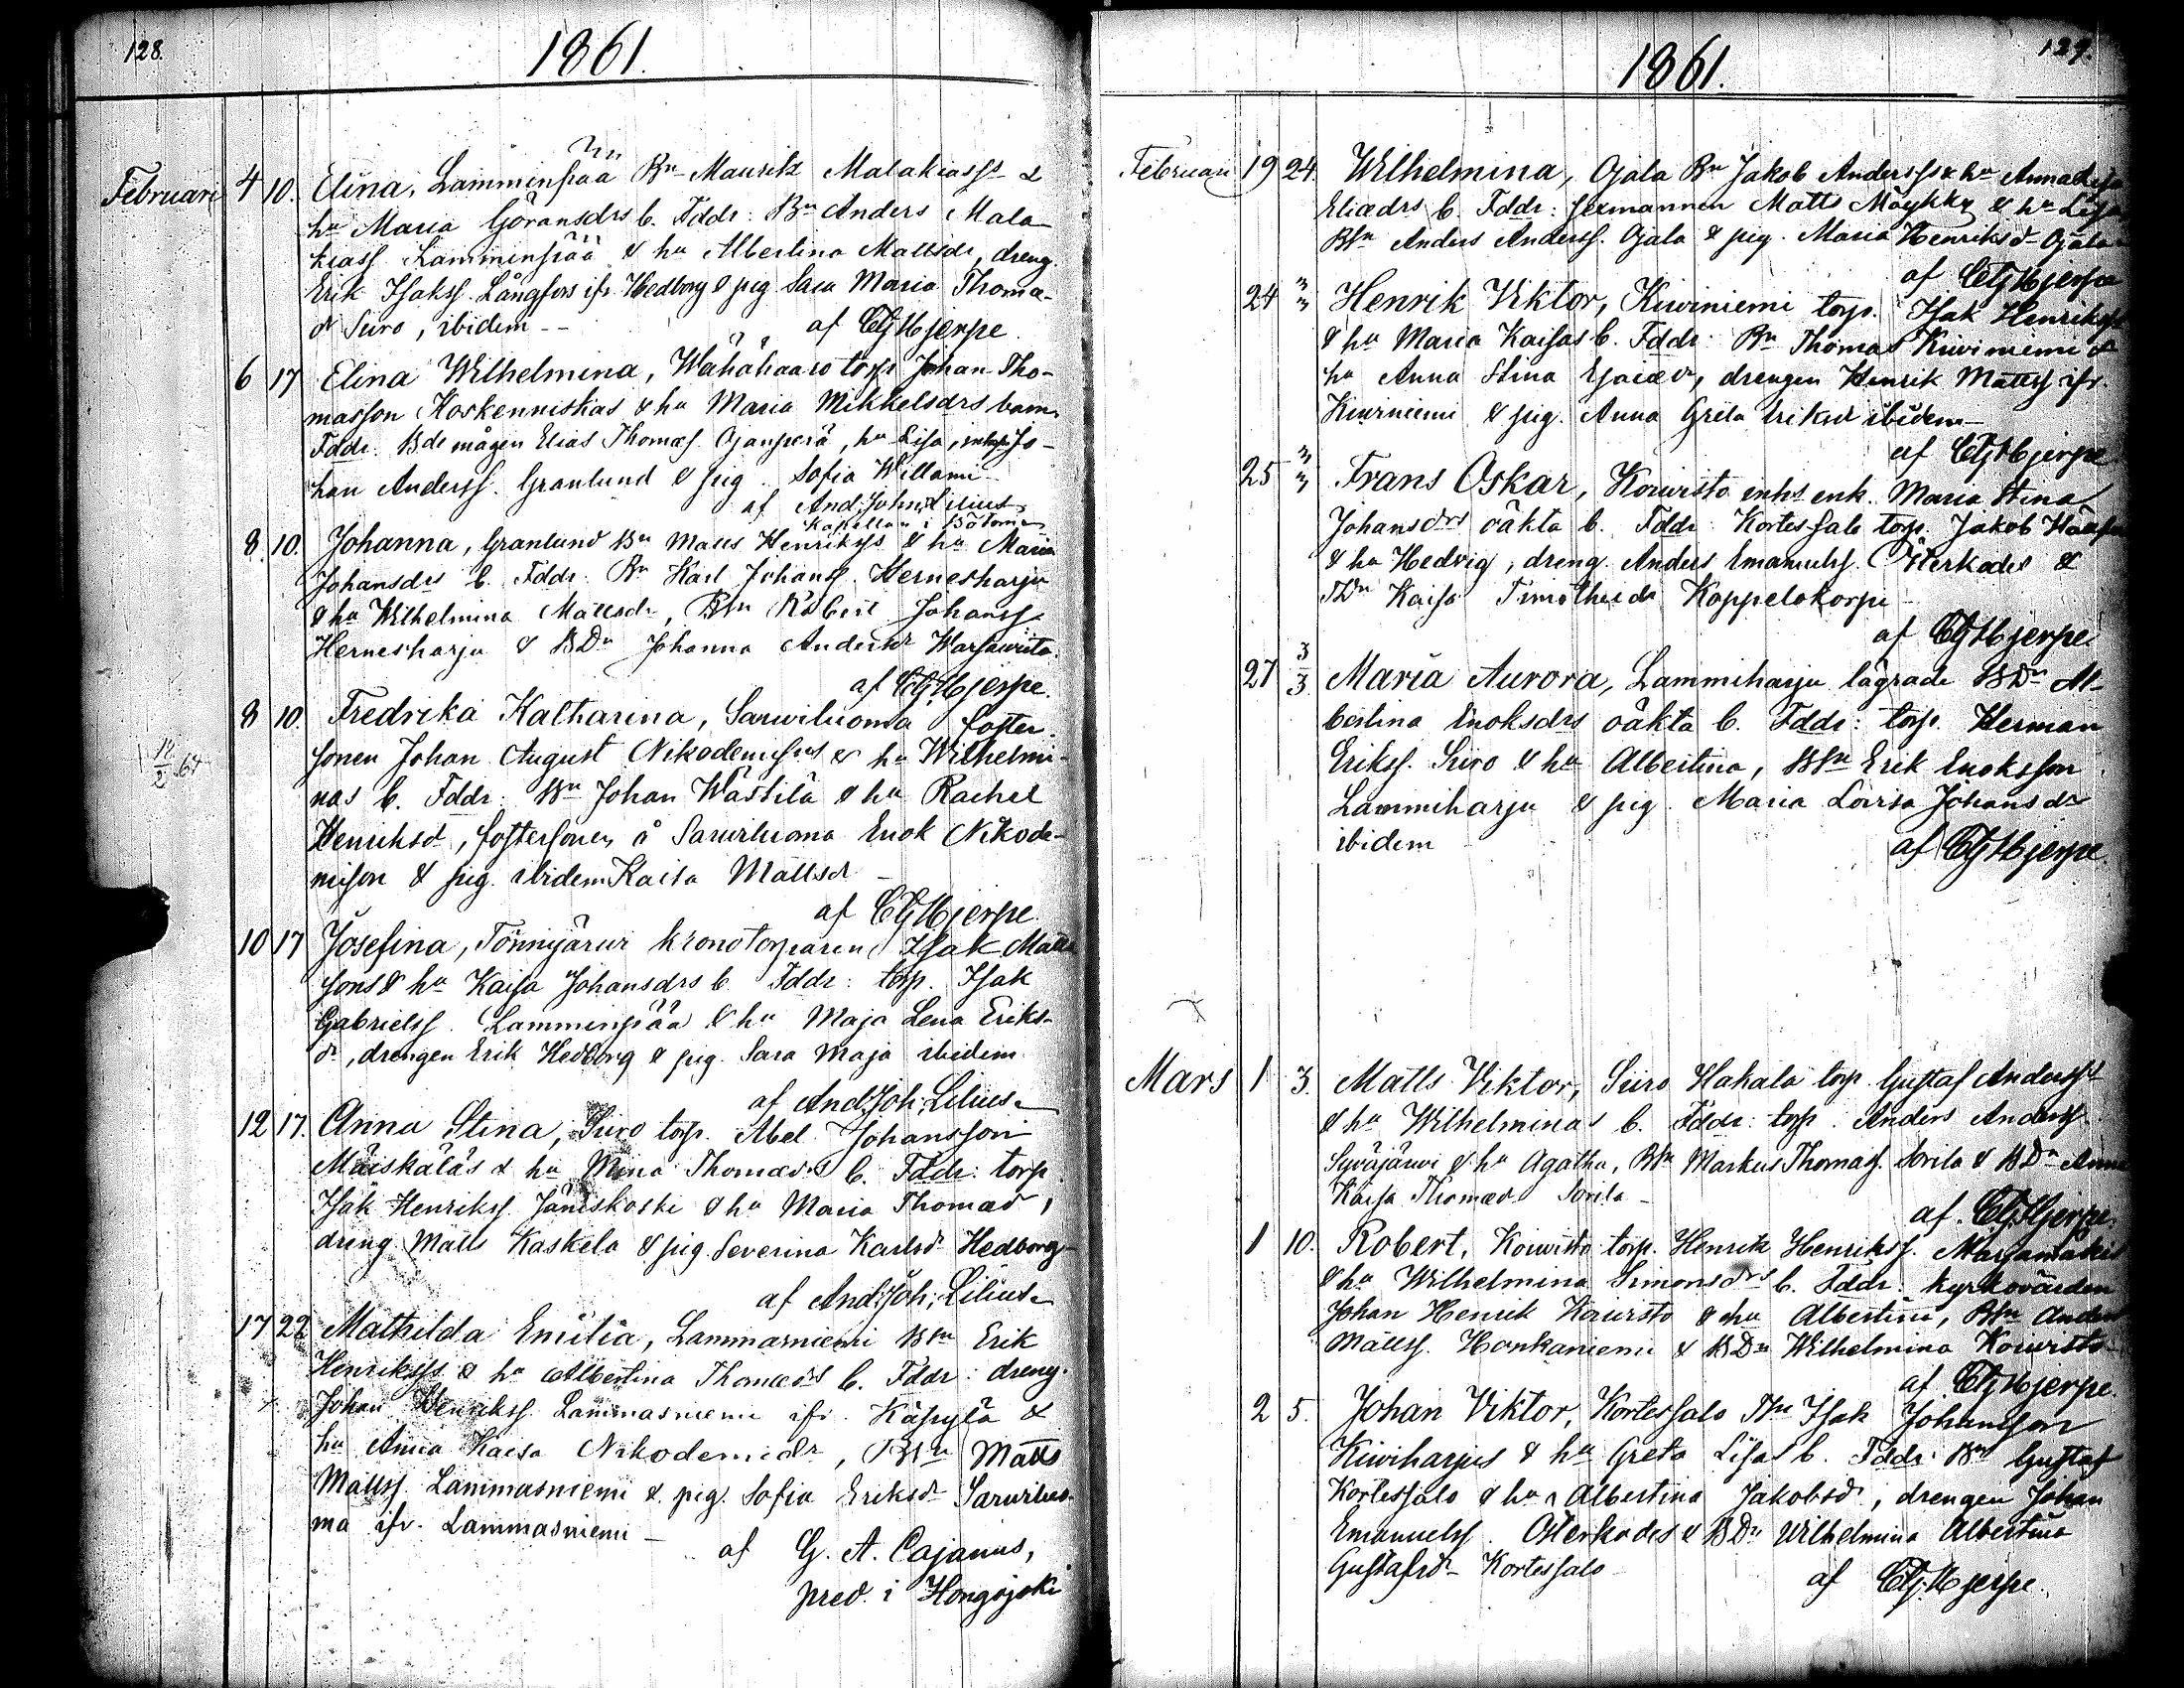 128.
1861.
Februari 4 10. Elina, Lamminpää Bn Maurits Malakiass &
hu Maria Göransdrs b. Fddr: Bn Anders Mala-
kiass Lamminpää & hu Albertina Mattsdr, dreng.
Erik Isakss. Långfors ifr. Hedborg & pig Sara Maria Thoma-
dr Siiro, ibidem -- af CGHjerpe
6 17 Elina Wilhelmina, Wähähaaro torp. Johan Tho-
masson Koskenniskas & hu Maria Mikkelsdrs barn
Fddr. Bde mågen Elias Thomæs. Ojanperä, hu Lisa, Jo-
han Anderss. Granlund & pig. Sofia Willami
af And: Joh: Lilius
Kapellan i Bötom
8 10. Johanna, Granlund Bn Matts Henrikss & hu Maria
Johansdrs b. Fddr: Bn Karl Johanss. Hernesharju
& hu Wilhelmina Mattsdr, BSn Robert Johanss.
Hernesharju & BDn Johanna Andersdr
af CGHjerpe.
8 10. Fredrika Katharina, Sarwiluoma foster-
sonen Johan August Nikodemiss & hu Wilhelmi-
nas b. Fddr: Bn Johan Wästilä & hu Rachel
Henriksdr, fostersonen å Sarwiluoma Enok Nikode-
mison & pig. ibidem Kaisa Mattsdr
af CGHjerpe.
10 17 Josefina, Tönnijärwi kronotorparen Isak Matts
sons & hu Kaisa Johansdrs b. Fddr: torp. Isak
Gabrielss. Lamminpää & hu Maja Lena Eriks-
dr, drengen Erik Hedborg & pig. Sara Maja ibidem
af And: Joh: Lilius
12 17. Anna Stina, Siiro torp. Abel Johansson
Mäiskäläs & hu Mina Thomædrs b. Fddr: torp.
Isak Henrikss. Jäniskoski & hu Maria Thomædr,
dreng Matts Kaskela & pig. Severina Karlsdr Hedborg
af And: Joh: Lilius
17 22 Mathilda Emilia, Lammasniemi BSn Erik
Henrikss & hu Albertina Thomædrs b. Fddr: dreng.
Johan Henrikss. Lammasniemi ifr. Käpylä &
hu Anna Kaisa Nikodemidr, BSn Matts
Mattss. Lammasniemi & pig. Sofia Eriksdr Sarwiluo-
ma ifr. Lammasniemi -
af G. A. Cajanus,
pred. i Hongojoki
12/2 64
129.
1861.
Februari 19 24. Wilhelmina, Ojala Bn Jakob Anderss & hu Anna Lisa
Eliædrs b. Fddr: sexmannen Matts Mäykky & hu Lisa
BSn Anders Anderss. Ojala & pig. Maria Henriksdr Ojala
af CGHjerpe
24 3/3 Henrik Viktor, Kiwiniemi torp. Isak Henrikss
& hu Maria Kaisas b. Fddr: Bn Thomas Kiwiniemi &
hu Anna Stina, drengen Henrik Mattss ifr.
Kiwiniemi & pig. Anna Greta Eriksdr ibidem -
af CGHjerpe
25 3/3 Frans Oskar, Koiwisto enk. Maria Stina
Johansdrs oäkta b. Fddr: Kortessalo torp. Jakob
& hu Hedvig, dreng. Anders Emanuelss. Österkades &
TDn Kaisa Timotheidr Koppelokorpi -
af CGHjerpe.
27 3/3. Maria Aurora, Lammiharju lägrade BDn Al-
bertina Enoksdrs oäkta b. Fddr: torp. Herman
Erikss. Siiro & hu Albertina, BSn Erik Enoksson
Lammiharju & pig. Maria Lovisa Johansdr
ibidem af CGHjerpe
Mars 1 3. Matts Viktor, Siiro Hakala torp. Gustaf Anderss
& hu Wilhelminas b. Fddr: torp. Anders Anderss.
Syväjärwi & hu Agatha, BSn Markus Thomass. Sorila & BDn Anna
Kaisa Thomædr Sorila -
af. CGHjerpe.
1 10. Robert, Koiwisto torp. Henrik Henrikss. Marjamäkis
& hu Wilhelmina Simonsdrs b. Fddr: kyrkovärden
Johan Henrik Koiwisto & hu Albertina, BSn Anders
Mattss. Honkaniemi & BDn Wilhelmina Koiwisto -
af CGHjerpe.
2 5. Johan Viktor, Kortessalo Isak Johansson
Kiwiharjus & hu Greta Lisas b. Fddr: Bn Gustaf
Kortessalo & hu Albertina Jakobsdr, drengen Johan
Emanuelss. Österkades & BDn Wilhelmina Albertina
Gustafsdr Kortessalo af CGHjerpe.